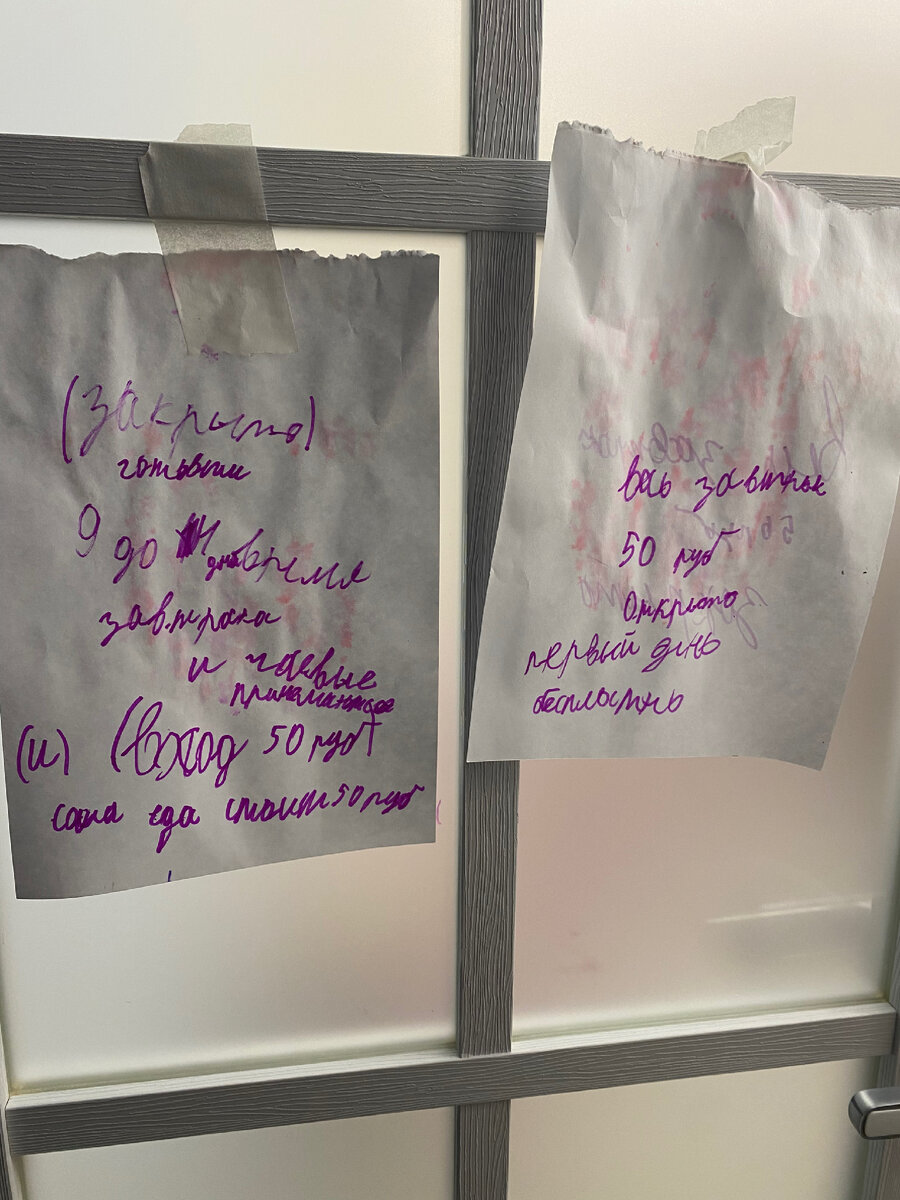 (Закрыто)
готовим
9 до 11 дня время
завтрака
и чаевые
принемаются
(и) (вход 50 руб
сама еда стоит 50 руб
весь завтрак
50 руб
Открыто
первый день
бесплатнь